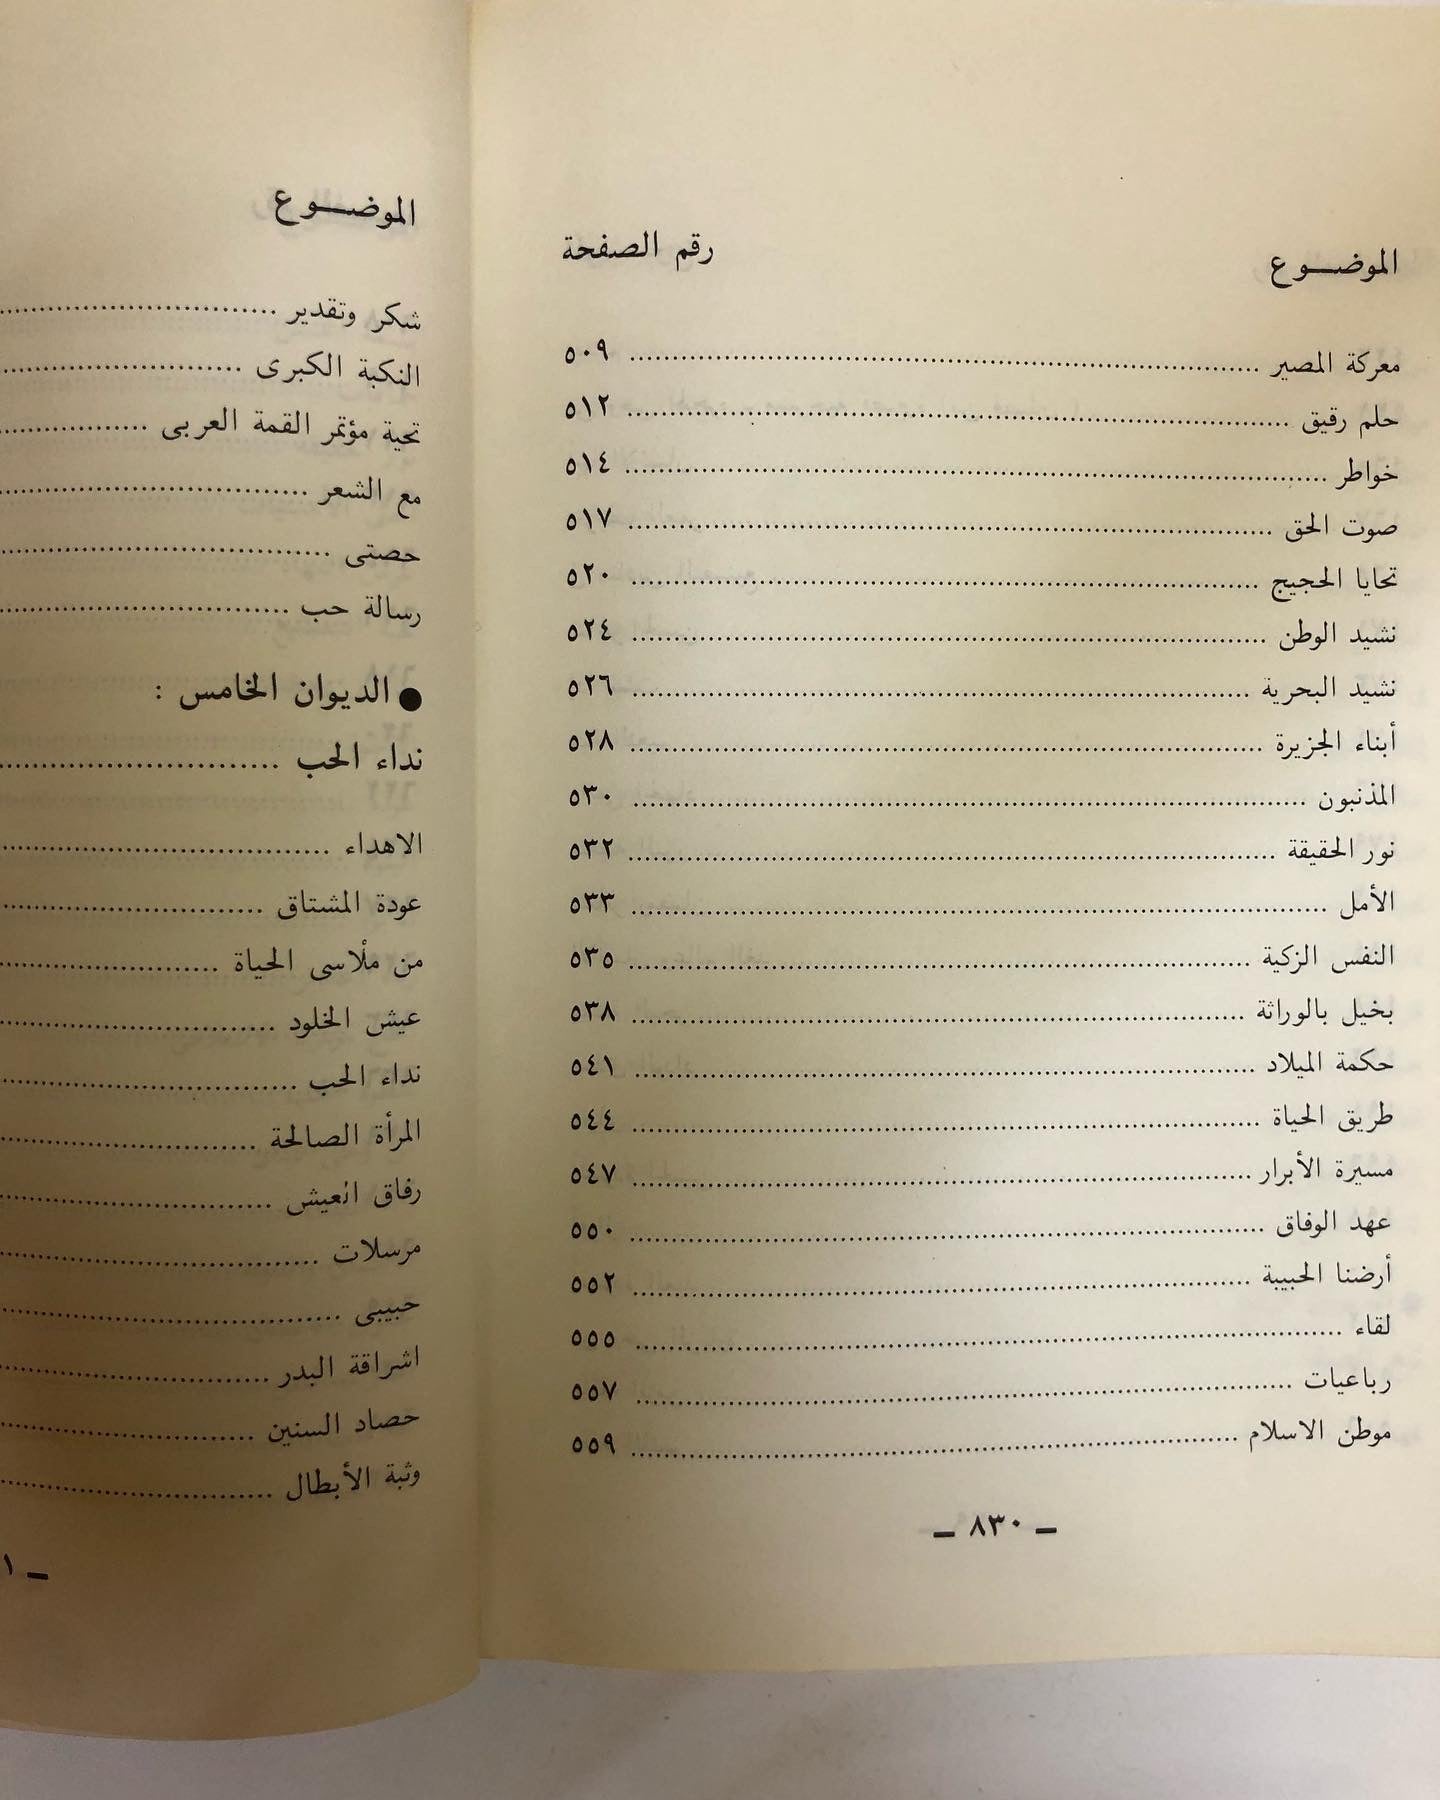 الموضـــوع رقم الصفحة
معركة المصير ........ ٥٠٩
حلم رقيق ........ ٥١٢
خواطر ........ ٥١٤
صوت الحق ........ ٥١٧
تحايا الحجيج ........ ٥٢٠
نشيد الوطن ........ ٥٢٤
نشيد البحرية ........ ٥٢٦
أبناء الجزيرة ........ ٥٢٨
المذنبون ........ ٥٣٠
نور الحقيقة ........ ٥٣٢
الأمل ........ ٥٣٣
النفس الزكية ........ ٥٣٥
بخيل بالوراثة ........ ٥٣٨
حكمة الميلاد ........ ٥٤١
طريق الحياة ........ ٥٤٤
مسيرة الأبرار ........ ٥٤٧
عهد الوفاق ........ ٥٥٠
أرضنا الحبيبة ........ ٥٥٢
لقاء ........ ٥٥٥
رباعيات ........ ٥٥٧
موطن الاسلام ........ ٥٥٩
ــ ٨٣٠ ــ
الموضـــوع
شكر وتقدير ........
النكبة الكبرى ........
تحية مؤتمر القمة العربى ........
مع الشعر ........
حصتى ........
رسالة حب ........
● الديوان الخامس :
نداء الحب ........
الاهداء ........
عودة المشتاق ........
من ملآسى الحياة ........
عيش الخلود ........
نداء الحب ........
المرأة الصالحة ........
رفاق العيش ........
مرسلات ........
حبيبى ........
اشراقة البدر ........
حصاد السنين ........
وثبة الأبطال ........